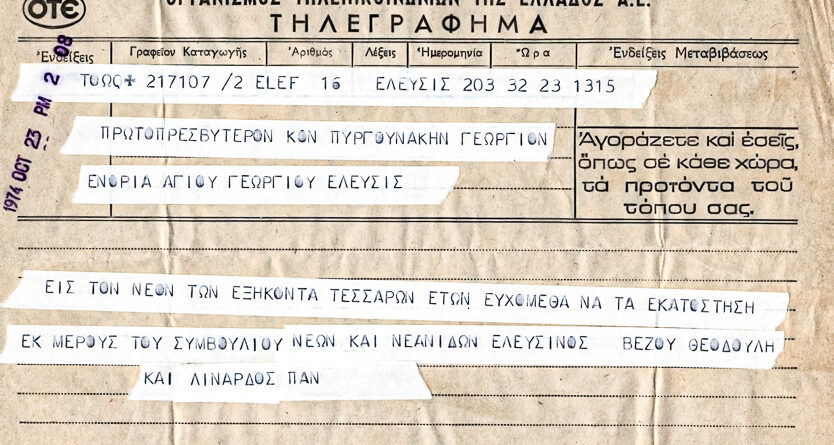 ΟΤΕ
ΟΡΓΑΝΙΣΜΟΣ ΤΗΛΕΠΙΚΟΙΝΩΝΙΩΝ ΤΗΣ ΕΛΛΑΔΟΣ Α.Ε.
ΤΗΛΕΓΡΑΦΗΜΑ
Ἐνδείξεις Γραφεῖον Καταγωγῆς Ἀριθμὸς Λέξεις Ἡμερομηνία Ὥρα Ἐνδείξεις Μεταβιβάσεως
1974 OCT 23 PM 2 08
ΤΟΩΣ+ 217107 /2 ELEF 16 ΕΛΕΥΣΙΣ 203 32 23 1315
ΠΡΩΤΟΠΡΕΣΒΥΤΕΡΟΝ ΚΟΝ ΠΥΡΓΟΥΝΑΚΗΝ ΓΕΩΡΓΙΟΝ
ΕΝΟΡΙΑ ΑΓΙΟΥ ΓΕΩΡΓΙΟΥ ΕΛΕΥΣΙΣ
Ἀγοράζετε καὶ ἐσεῖς,
ὅπως σὲ κάθε χώρα,
τὰ προϊόντα τοῦ
τόπου σας.
ΕΙΣ ΤΟΝ ΝΕΟΝ ΤΩΝ ΕΞΗΚΟΝΤΑ ΤΕΣΣΑΡΩΝ ΕΤΩΝ ΕΥΧΟΜΕΘΑ ΝΑ ΤΑ ΕΚΑΤΟΣΤΗΣΗ
ΕΚ ΜΕΡΟΥΣ ΤΟΥ ΣΥΜΒΟΥΛΙΟΥ ΝΕΩΝ ΚΑΙ ΝΕΑΝΙΔΩΝ ΕΛΕΥΣΙΝΟΣ ΒΕΖΟΥ ΘΕΟΔΟΥΛΗ
ΚΑΙ ΛΙΝΑΡΔΟΣ ΠΑΝ